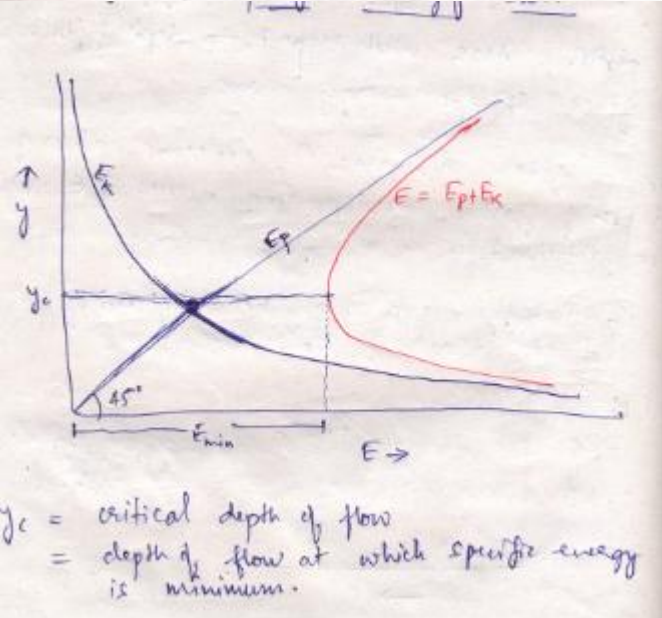 ↑
y
E_K
E_P
E = E_P+E_K
y_c
45°
E_min
E →
y_c = critical depth of flow
= depth of flow at which specific energy
is minimum.